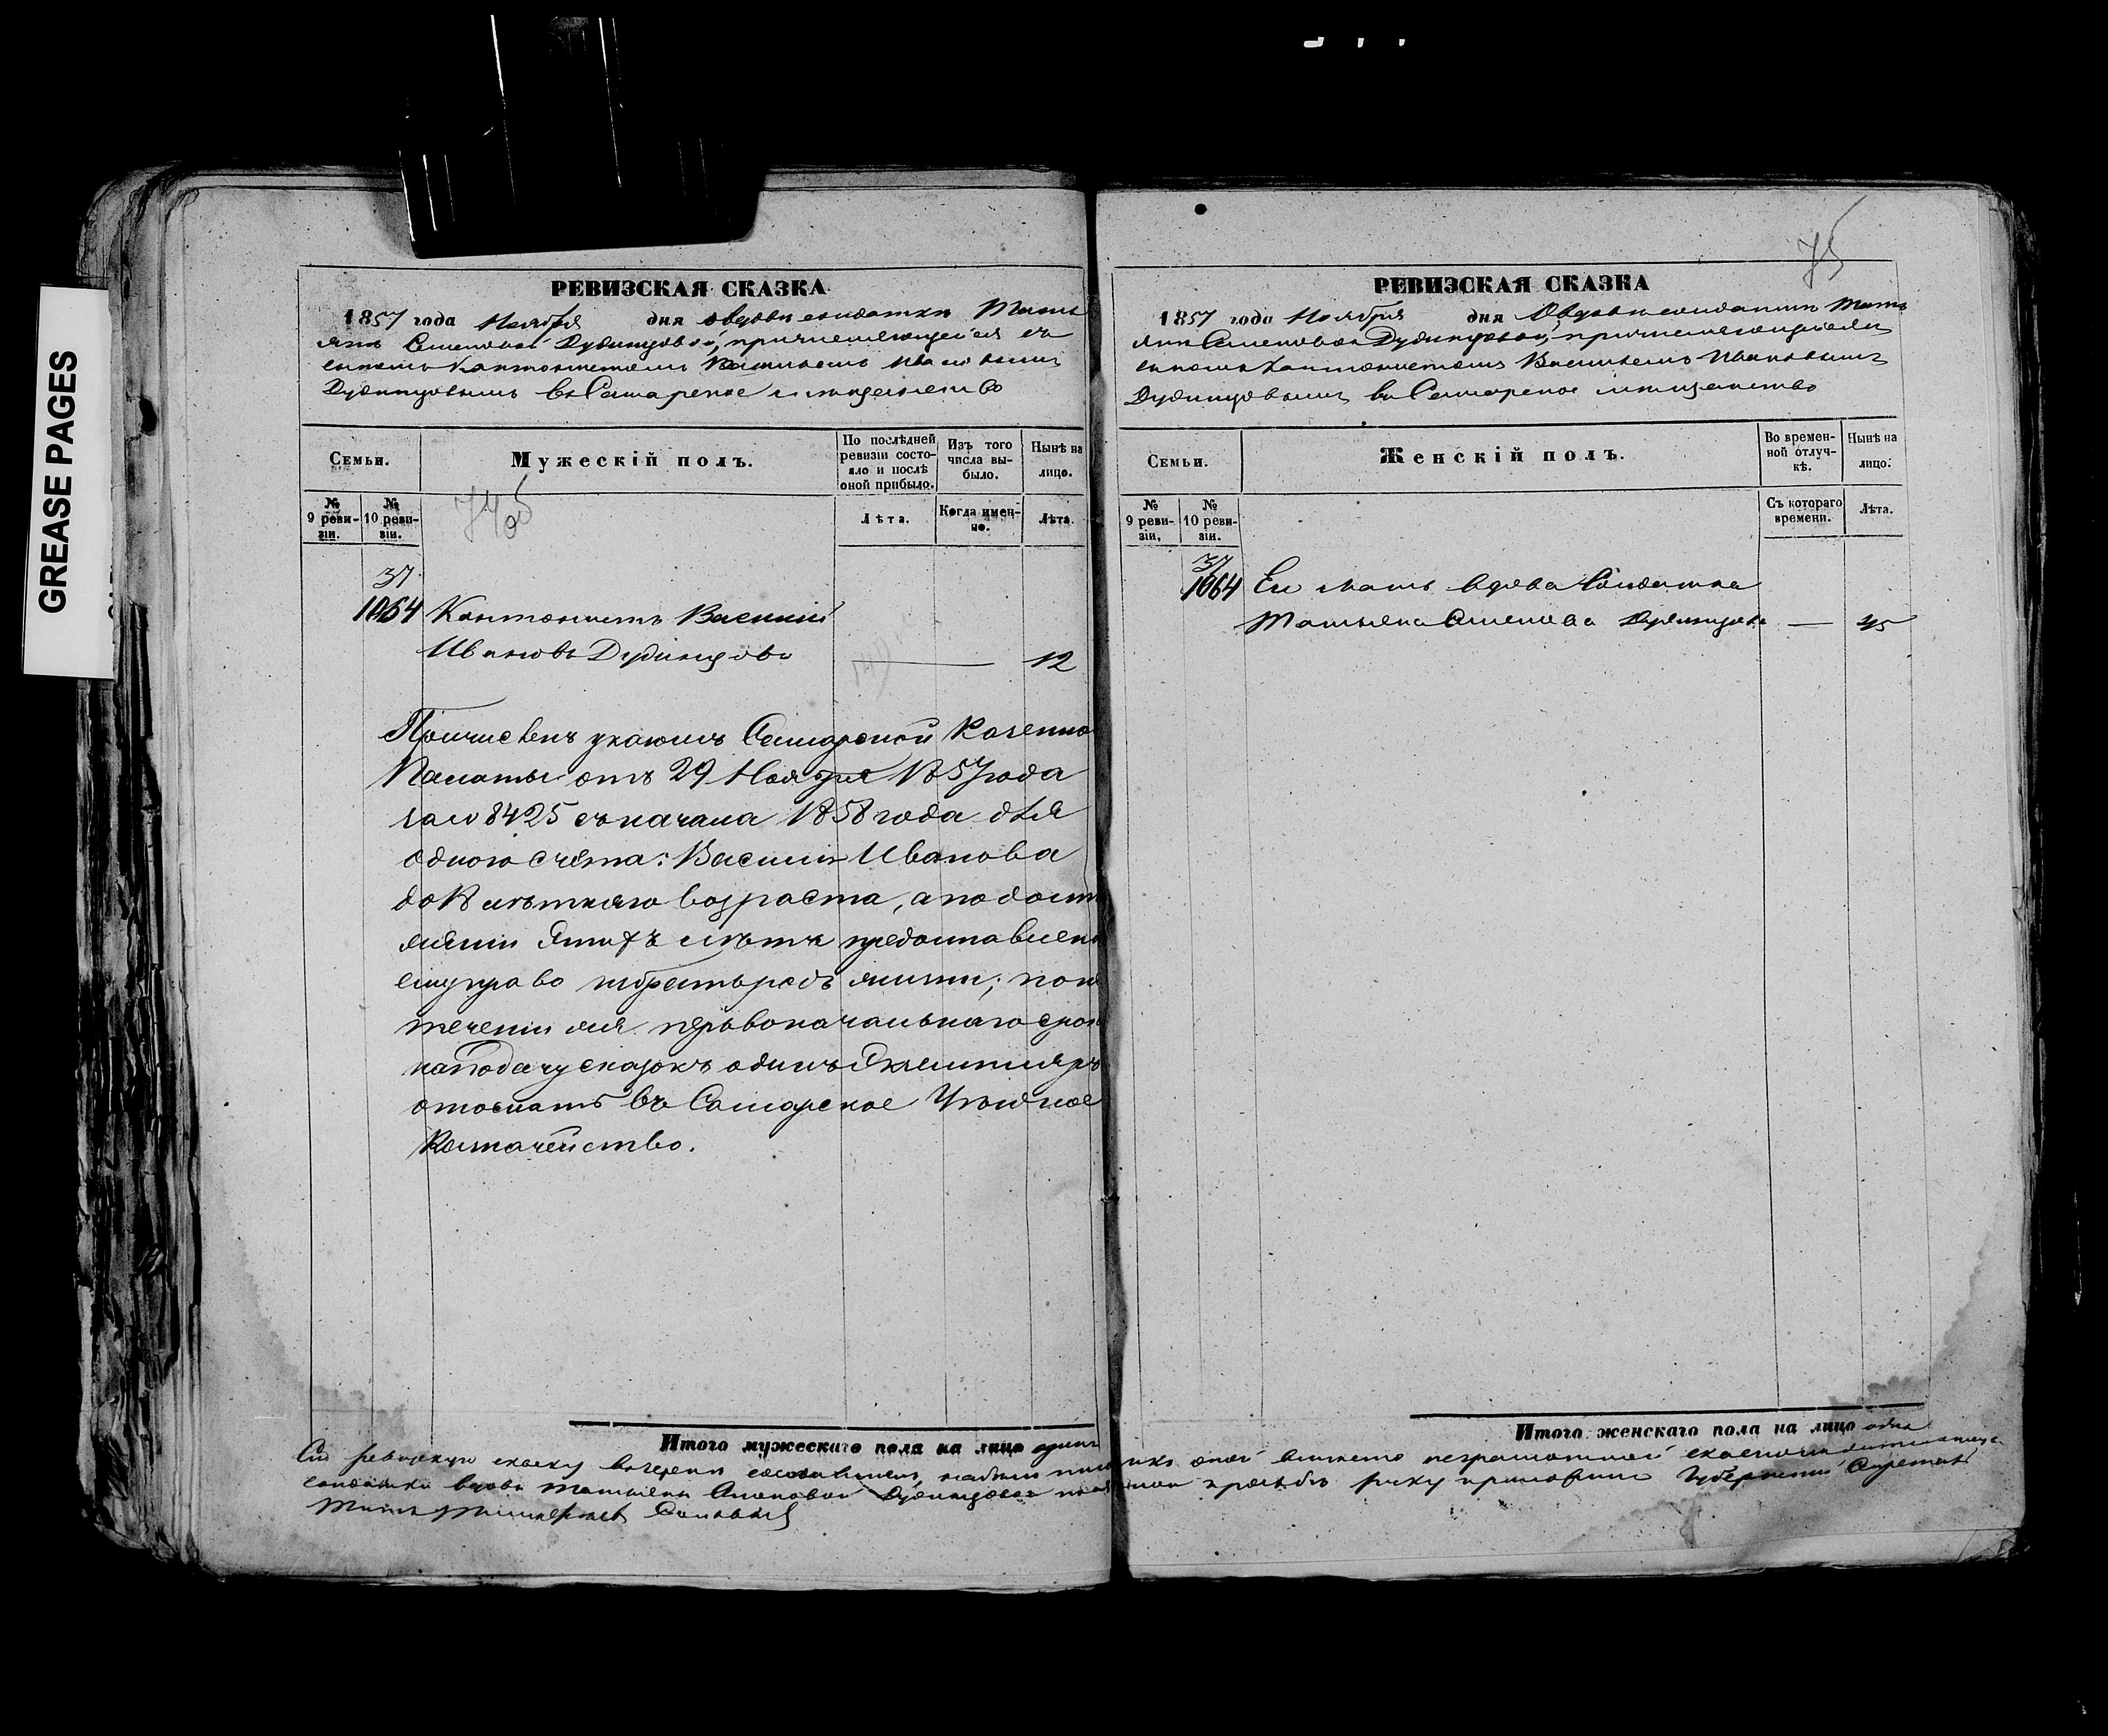 GREASE PAGES
РЕВИЗСКАЯ СКАЗКА
1857 года Ноября дня о вдове солдатки Тать
яне Семеновой Дудинцовой, причисляющейся съ
сыномъ Кантонистомъ Васильемъ Ивановымъ
Дудинцовымъ въ Самарское мещанство
Семьи.
Мужескій полъ.
По послѣдней ревизіи состо-яло и послѣ оной прибыло.
Изъ того числа вы-было.
Нынѣ на лицо.
№ 9 реви-зіи.
№ 10 реви-зіи.
74 об
Лѣта.
Когда имен-но.
Лѣта.
37
1064 Кантонистъ Василий
Ивановъ Дудинцовъ — 12
Причисленъ указомъ Самарской Казенно
Палаты отъ 29 Ноября 1857 года
за № 8425 съ начала 1858 года для
одного счета: Василий Иванова
до лѣтняго возраста, а по дости
женіи лѣтъ предоставлено
ему право избрать родъ жизни; по ис
теченіи первоначальнаго срок
на подачу сказокъ одинъ Экземпляръ
отосланъ въ Самарское Уѣздное
Казначейство.
Итого мужескаго пола на лицо одинъ
75
РЕВИЗСКАЯ СКАЗКА
1857 года Ноября дня О вдове солдатки Тать
яне Семеновой Дудинцовой, причисляющейся
сыномъ Кантонистомъ Васильемъ Ивановымъ
Дудинцовымъ въ Самарское мещанство
Семьи.
Женскій полъ.
Во времен-ной отлуч-кѣ.
Нынѣ на лицо.
№ 9 реви-зіи.
№ 10 реви-зіи.
Съ котораго времени.
Лѣта.
37
1064 Ея мать вдова Солдатка
Татьяна Семенова Дудинцова — 45
Итого женскаго пола на лицо одна
Сию ревизскую сказку вместо неграмотной
солдатки вдовы Татьяны Семеновой Дудинцовой прозьбѣ руку приложилъ Губернский Секретарь